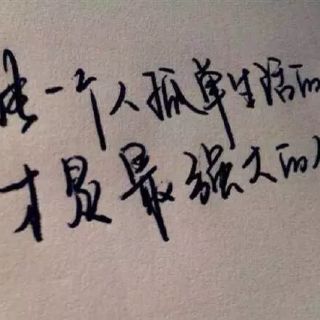 一个人孤单生活的
才是最强大的